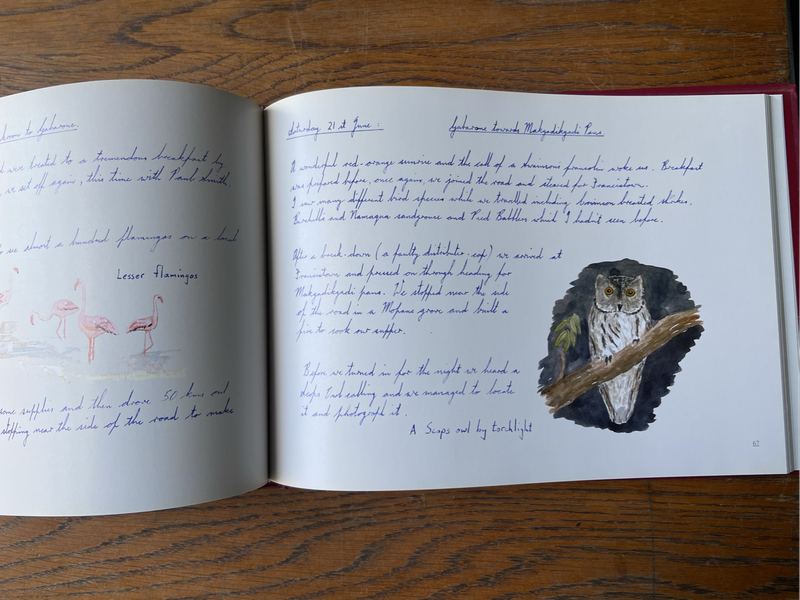 to Gaborone.
were treated to a tremendous breakfast by
we set off again, this time with Paul Smith.
almost a hundred flamingos on a local
Lesser flamingos
some supplies and then drove 50 kms out
stopping near the side of the road to make
Saturday 21st June :
Gaborone towards Makgadikgadi Pans
A wonderful red-orange sunrise and the call of a Swainsons francolin woke us. Breakfast
was prepared before, once again, we joined the road and steered for Francistown.
I saw many different bird species while we travelled including crimson breasted shrikes,
Burchells and Namaqua sandgrouse and Pied Babblers which I hadn't seen before.
After a break-down (a faulty distributor-cap) we arrived at
Francistown and pressed on through heading for
Makgadikgadi pans. We stopped near the side
of the road in a Mopane grove and built a
fire to cook our supper.
Before we turned in for the night we heard a
Scops Owl calling and we managed to locate
it and photograph it.
A Scops owl by torchlight
62